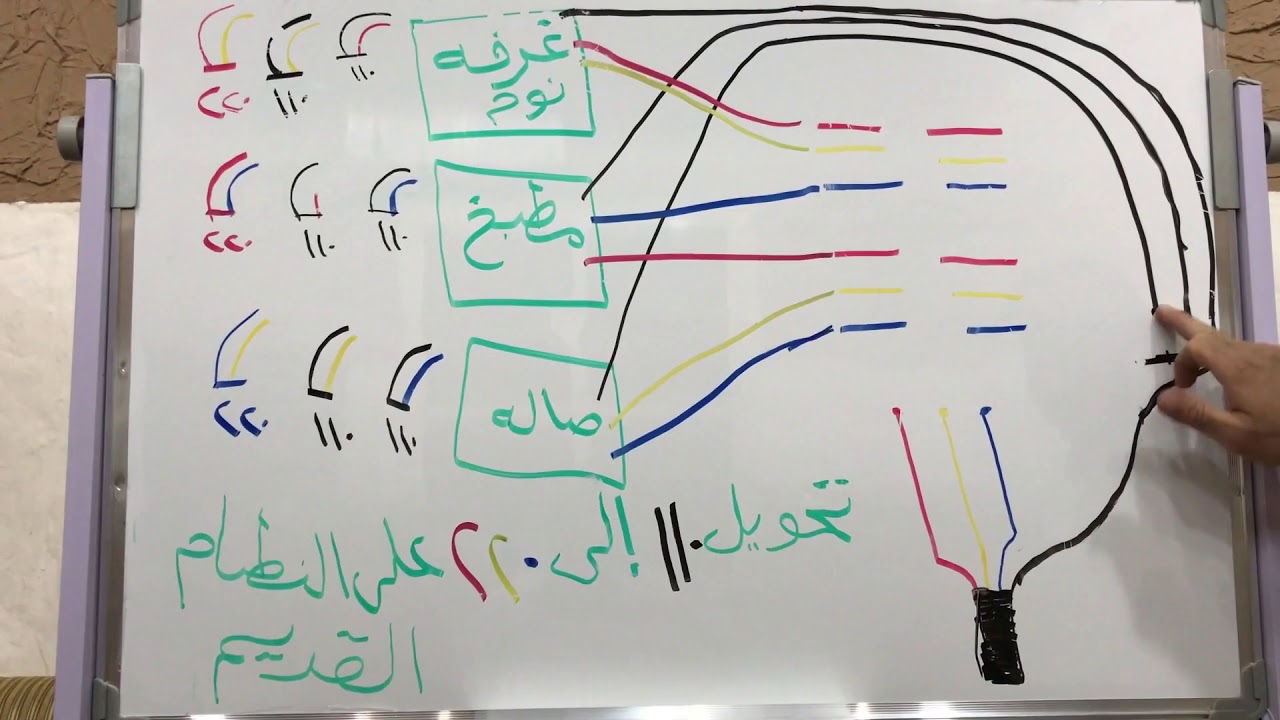 غرفه
نوم
١١٠
١١٠
٢٢٠
مطبخ
١١٠
١١٠
٢٢٠
صاله
١١٠
١١٠
٢٢٠
تحويل ١١٠ إلى ٢٢٠ على النظام
القديم